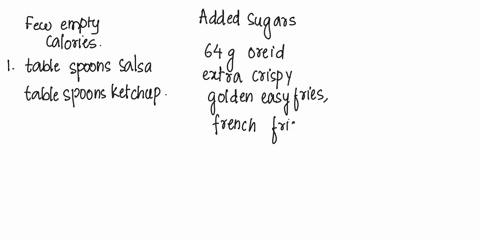 Few empty
calories.
1. table spoons salsa
table spoons ketchup.
Added Sugars
64 g oreid
extra crispy
golden easy fries,
french fri